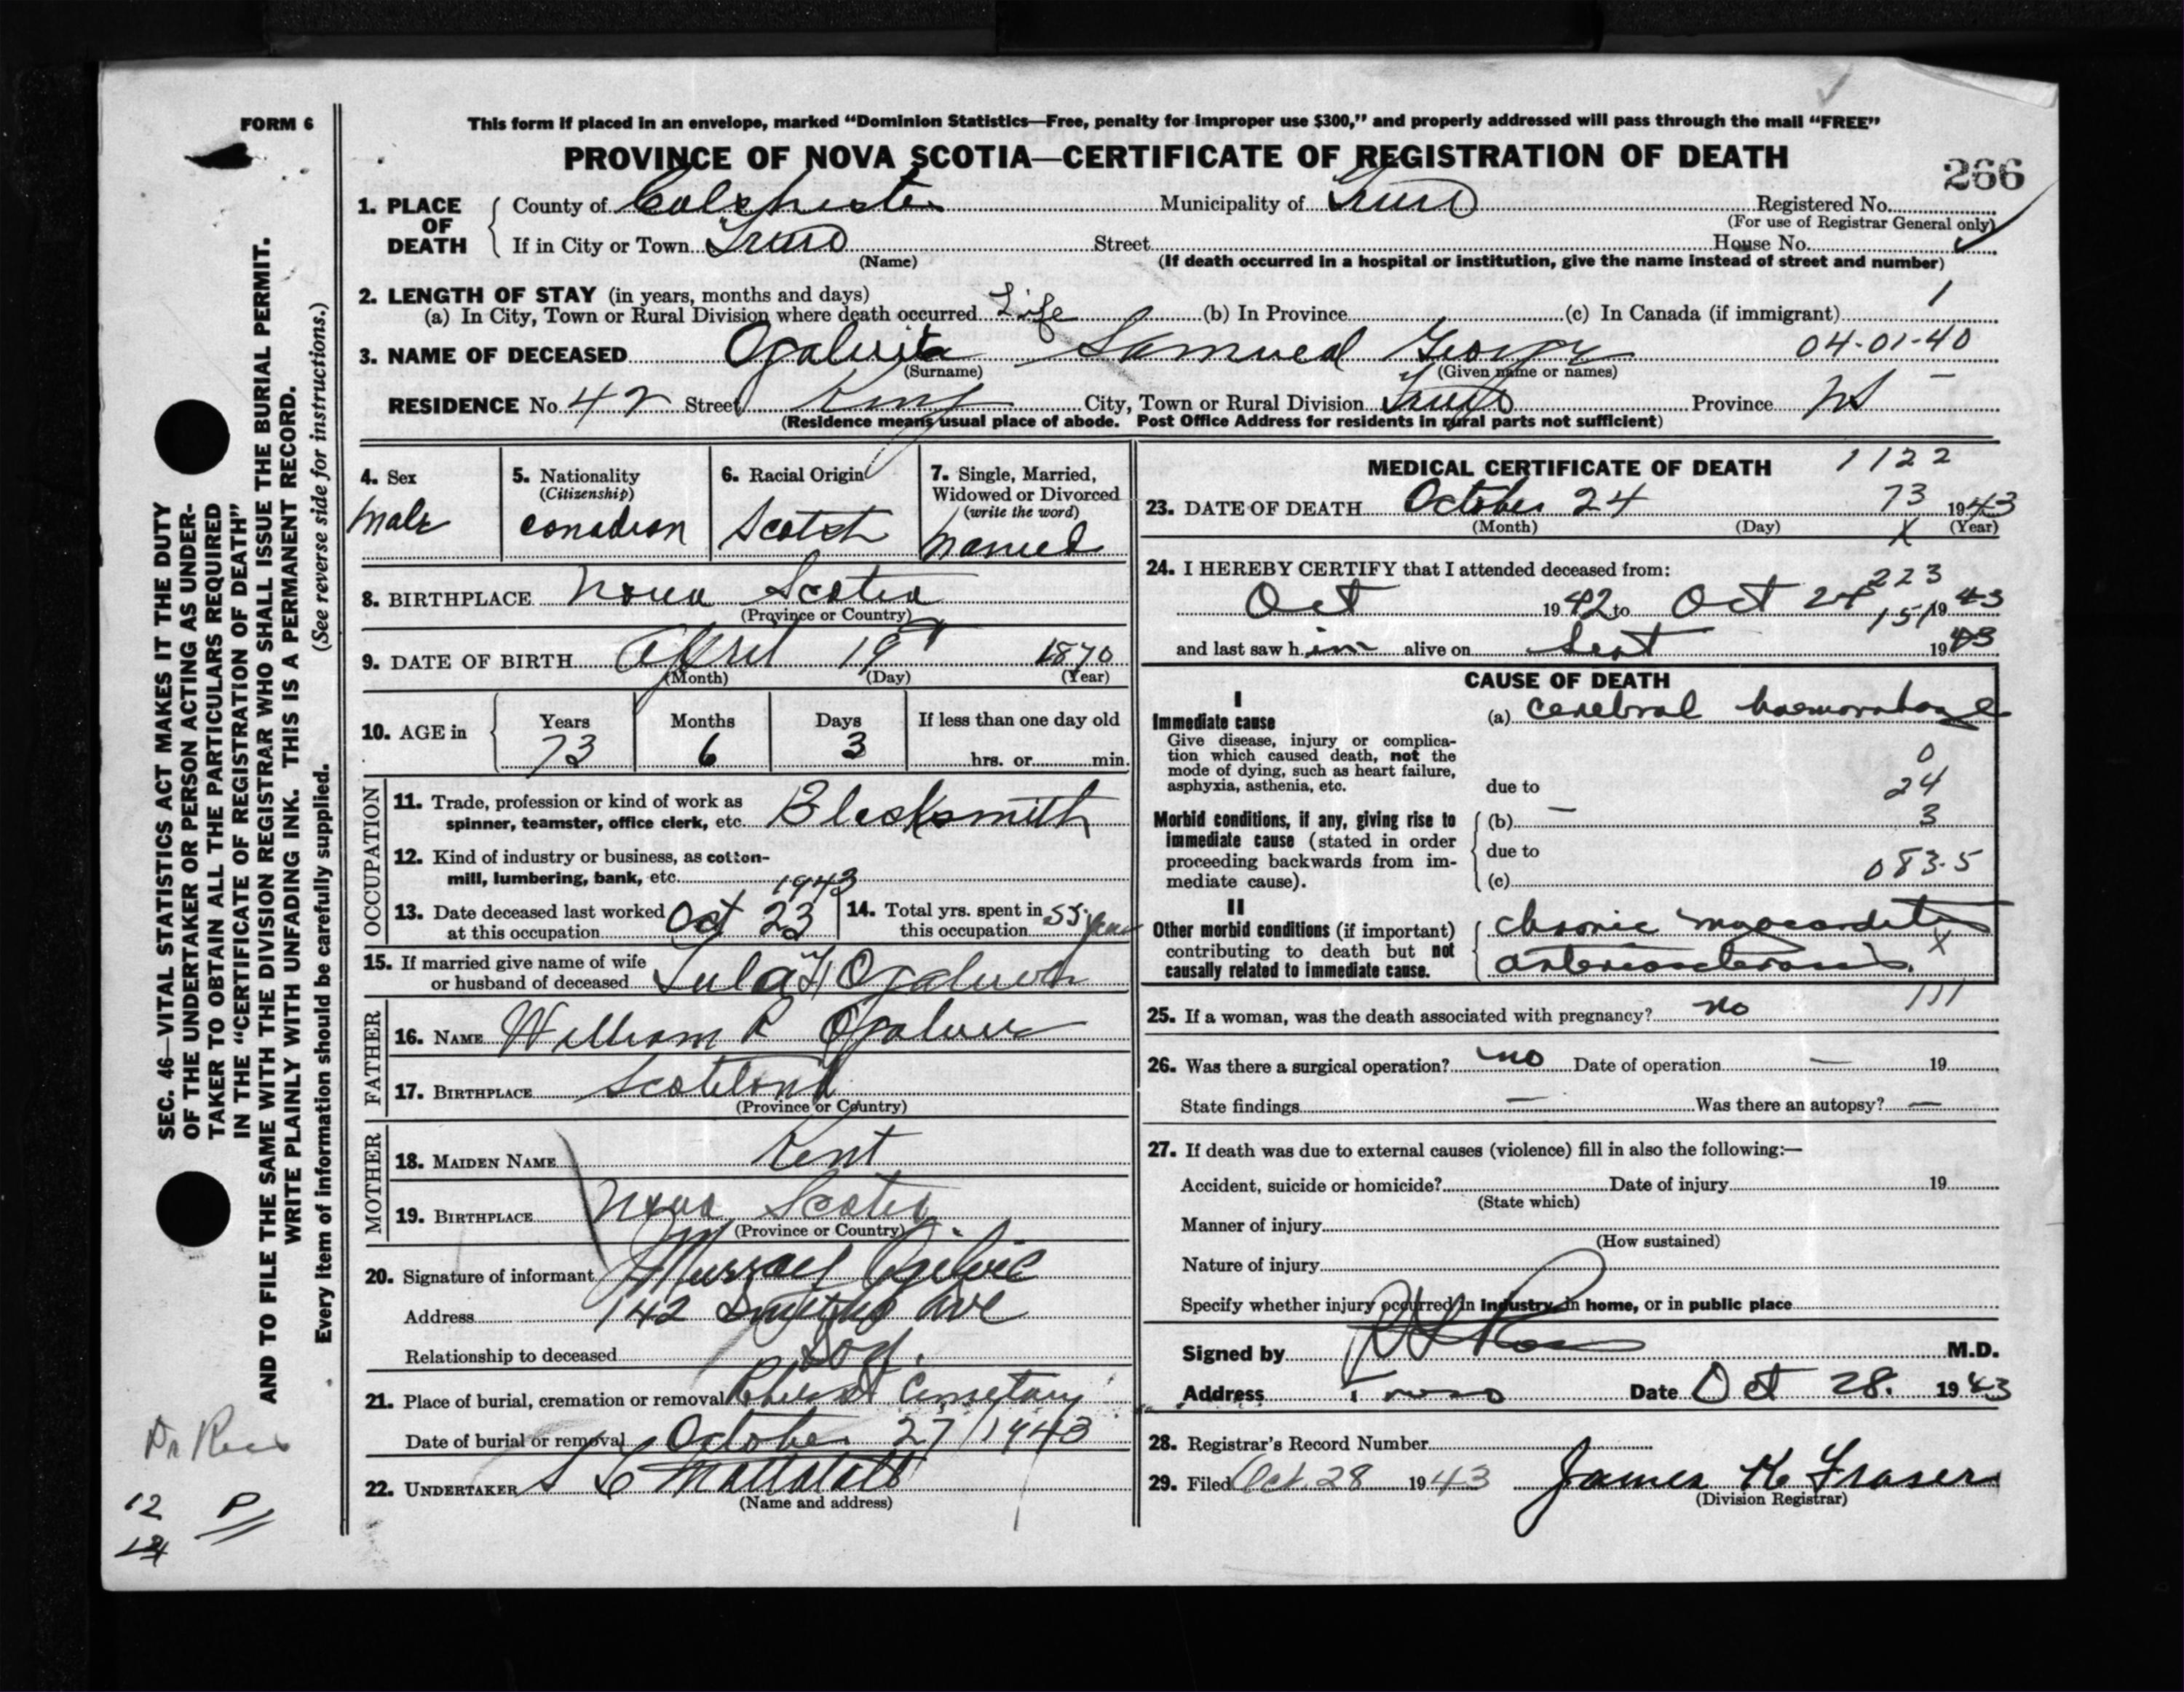 FORM 6
This form if placed in an envelope, marked "Dominion Statistics—Free, penalty for improper use $300," and properly addressed will pass through the mail "FREE"
PROVINCE OF NOVA SCOTIA—CERTIFICATE OF REGISTRATION OF DEATH
266
1. PLACE OF DEATH County of Colchester Municipality of Truro Registered No.
(For use of Registrar General only)
If in City or Town Truro Street House No.
(Name) (If death occurred in a hospital or institution, give the name instead of street and number)
2. LENGTH OF STAY (in years, months and days)
(a) In City, Town or Rural Division where death occurred Life (b) In Province (c) In Canada (if immigrant) 1
3. NAME OF DECEASED Samuel George 04-01-40
(Surname) (Given name or names)
RESIDENCE No. 42 Street King City, Town or Rural Division Truro Province NS
(Residence means usual place of abode. Post Office Address for residents in rural parts not sufficient)
4. Sex
male
5. Nationality
(Citizenship)
canadian
6. Racial Origin
Scotch
7. Single, Married,
Widowed or Divorced
(write the word)
married
8. BIRTHPLACE Nova Scotia
(Province or Country)
9. DATE OF BIRTH April 19 1870
(Month) (Day) (Year)
10. AGE in Years Months Days If less than one day old
73 6 3 hrs. or min.
OCCUPATION
11. Trade, profession or kind of work as
spinner, teamster, office clerk, etc. Blacksmith
12. Kind of industry or business, as cotton-
mill, lumbering, bank, etc.
1943
13. Date deceased last worked
at this occupation Oct 23
14. Total yrs. spent in
this occupation 55 years
15. If married give name of wife
or husband of deceased Lula
FATHER
16. NAME William R
17. BIRTHPLACE Scotland
(Province or Country)
MOTHER
18. MAIDEN NAME Kent
19. BIRTHPLACE Nova Scotia
(Province or Country)
20. Signature of informant Murray Ogilvie
Address 142 Ave
Relationship to deceased Son.
21. Place of burial, cremation or removal Cemetary
Date of burial or removal October 27/1943
22. UNDERTAKER
(Name and address)
MEDICAL CERTIFICATE OF DEATH 1122
23. DATE OF DEATH October 24 73 1943
(Month) (Day) X (Year)
24. I HEREBY CERTIFY that I attended deceased from:
223
Oct 1942 to Oct 24 151 1943
and last saw h im alive on Sept 1943
CAUSE OF DEATH
I
Immediate cause (a) cerebral haemorrhage
Give disease, injury or complica-
tion which caused death, not the
mode of dying, such as heart failure,
asphyxia, asthenia, etc.
0
due to 24
Morbid conditions, if any, giving rise to
immediate cause (stated in order
proceeding backwards from im-
mediate cause).
(b) — 3
due to
(c) 083.5
II
Other morbid conditions (if important)
contributing to death but not
causally related to immediate cause.
chronic myocarditis
arteriosclerosis. X
111
25. If a woman, was the death associated with pregnancy? no
26. Was there a surgical operation? no Date of operation — 19
State findings — Was there an autopsy? —
27. If death was due to external causes (violence) fill in also the following:—
Accident, suicide or homicide? Date of injury 19
(State which)
Manner of injury
(How sustained)
Nature of injury
Specify whether injury occurred in industry, in home, or in public place
Signed by M.D.
Address Truro Date Oct 28. 1943
28. Registrar's Record Number
29. Filed Oct. 28 1943 James K Fraser
(Division Registrar)
SEC. 46—VITAL STATISTICS ACT MAKES IT THE DUTY
OF THE UNDERTAKER OR PERSON ACTING AS UNDER-
TAKER TO OBTAIN ALL THE PARTICULARS REQUIRED
IN THE "CERTIFICATE OF REGISTRATION OF DEATH"
AND TO FILE THE SAME WITH THE DIVISION REGISTRAR WHO SHALL ISSUE THE BURIAL PERMIT.
WRITE PLAINLY WITH UNFADING INK. THIS IS A PERMANENT RECORD.
Every item of information should be carefully supplied. (See reverse side for instructions.)
12 P